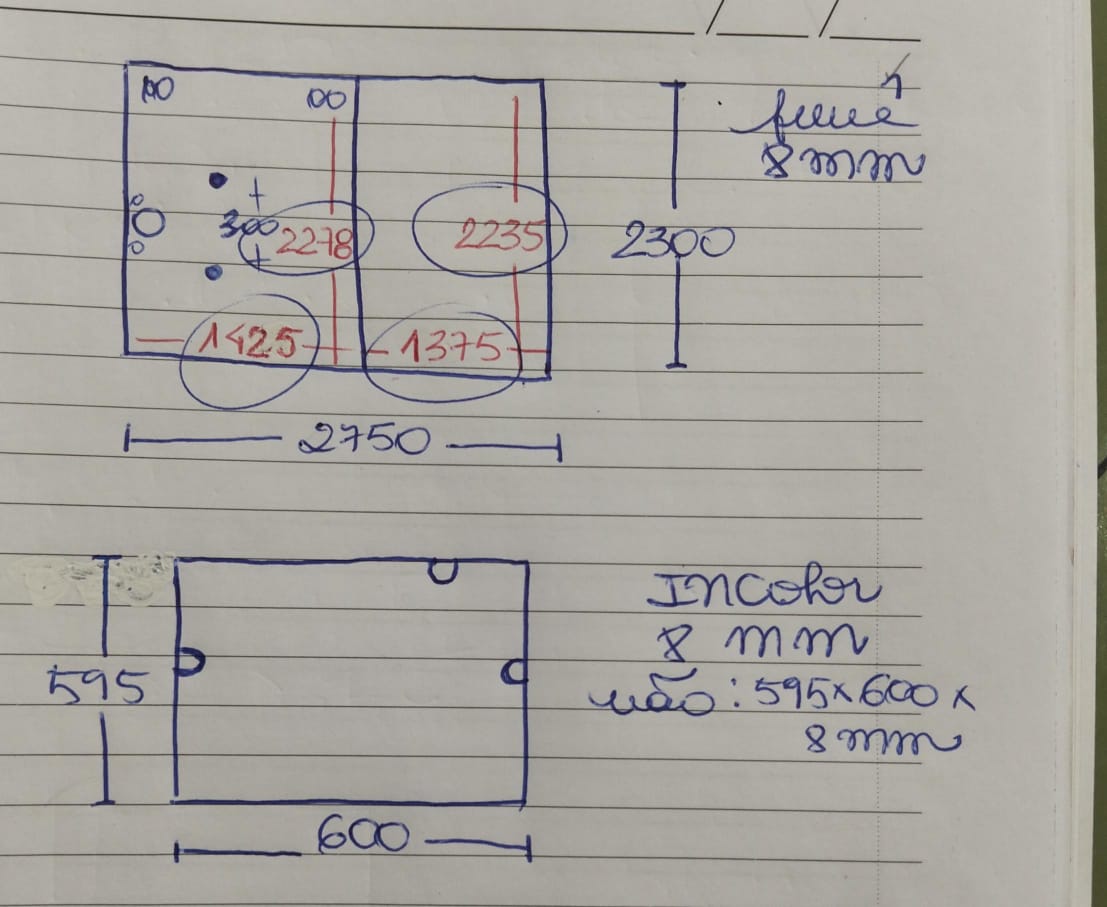 fumê
8 mm
300
2278
2235
2300
1425
1375
2750
INColor
8 mm
595
vão: 595x600x
8 mm
600